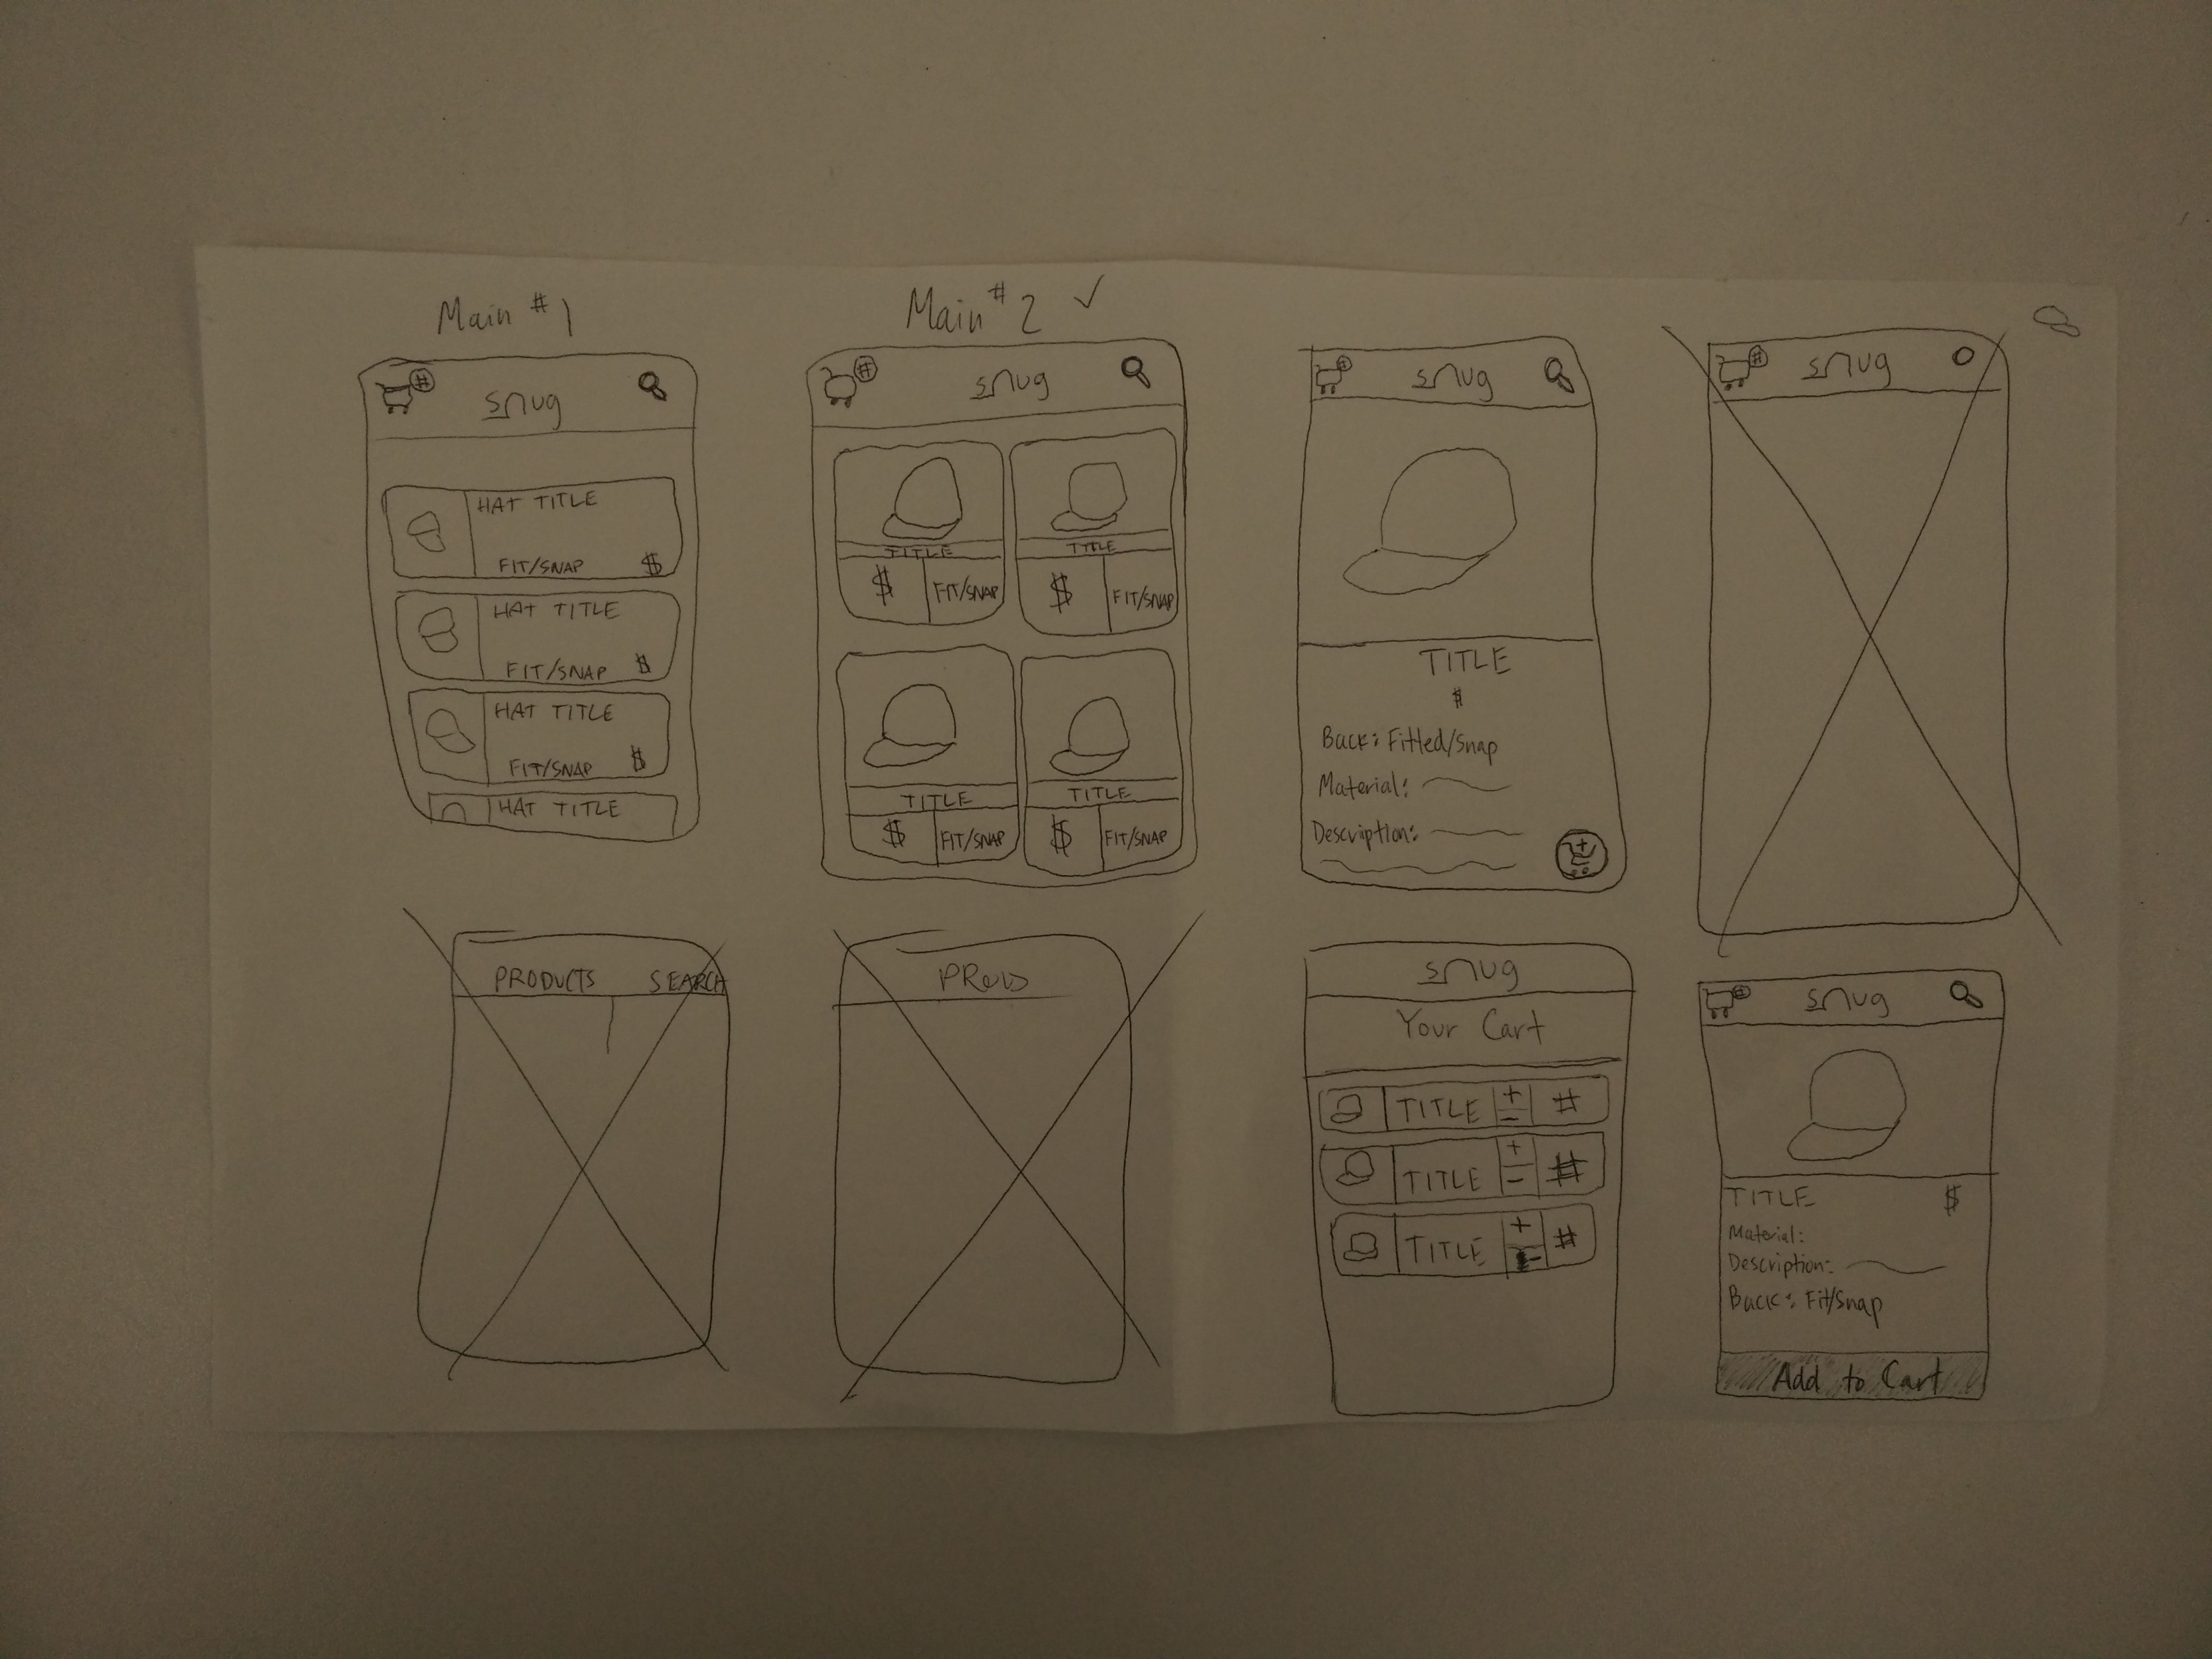 Main #1
#
snug
HAT TITLE
FIT/SNAP $
HAT TITLE
FIT/SNAP $
HAT TITLE
FIT/SNAP $
HAT TITLE
Main #2 ✓
#
snug
TITLE
$ FIT/SNAP
TITLE
$ FIT/SNAP
TITLE
$ FIT/SNAP
TITLE
$ FIT/SNAP
#
snug
TITLE
$
Back: Fitted/Snap
Material:
Description:
+
#
snug
PRODUCTS SEARCH
snug
Your Cart
TITLE + - #
TITLE + - #
TITLE + - #
#
snug
TITLE $
Material:
Description:
Back: Fit/Snap
Add to Cart